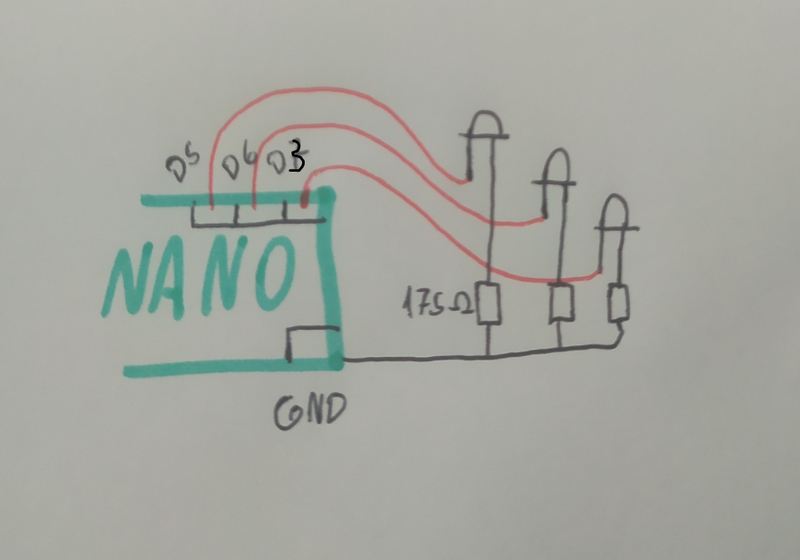 D5 D6 D3
NANO
175Ω
GND